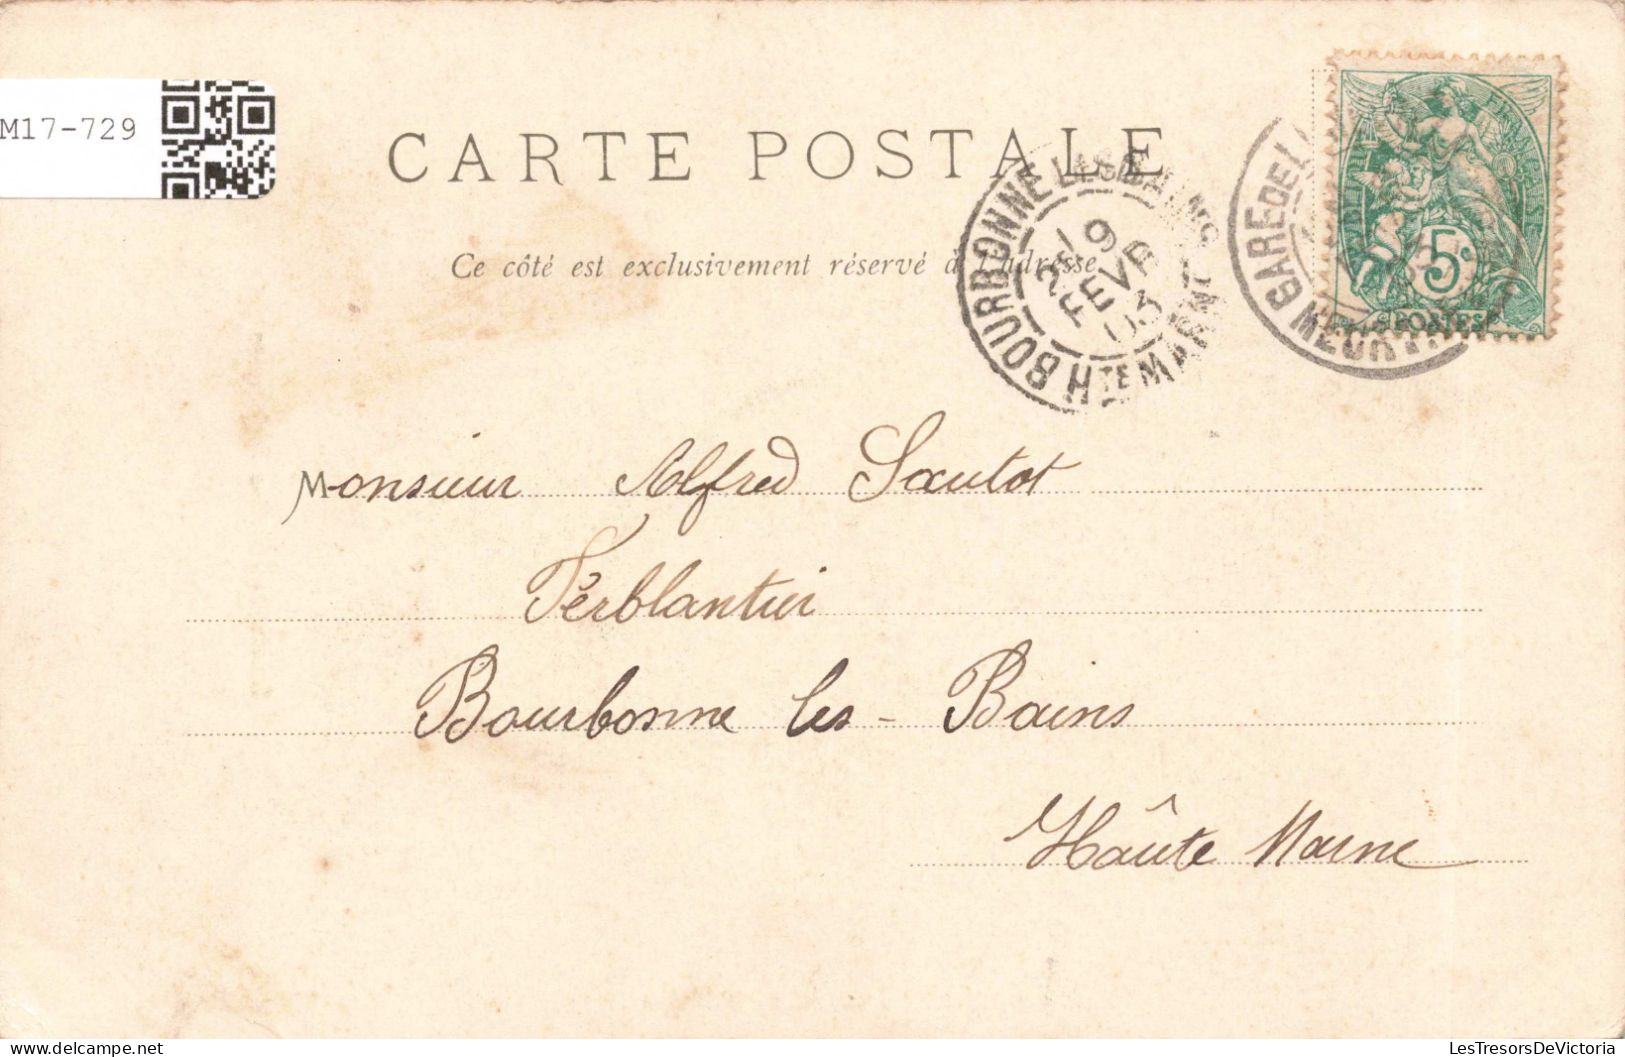 M17-729
CARTE POSTALE
Ce côté est exclusivement réservé à l'adresse
BOURBONNE LES BAINS
9
FEVR
03
HTE MARNE
GARE DE L
MEURT
RÉPUBLIQUE FRANÇAISE
5c
POSTES
Monsieur Alfred Sautot
Ferblantier
Bourbonne les - Bains
Hâute Marne
LesTresorsDeVictoria